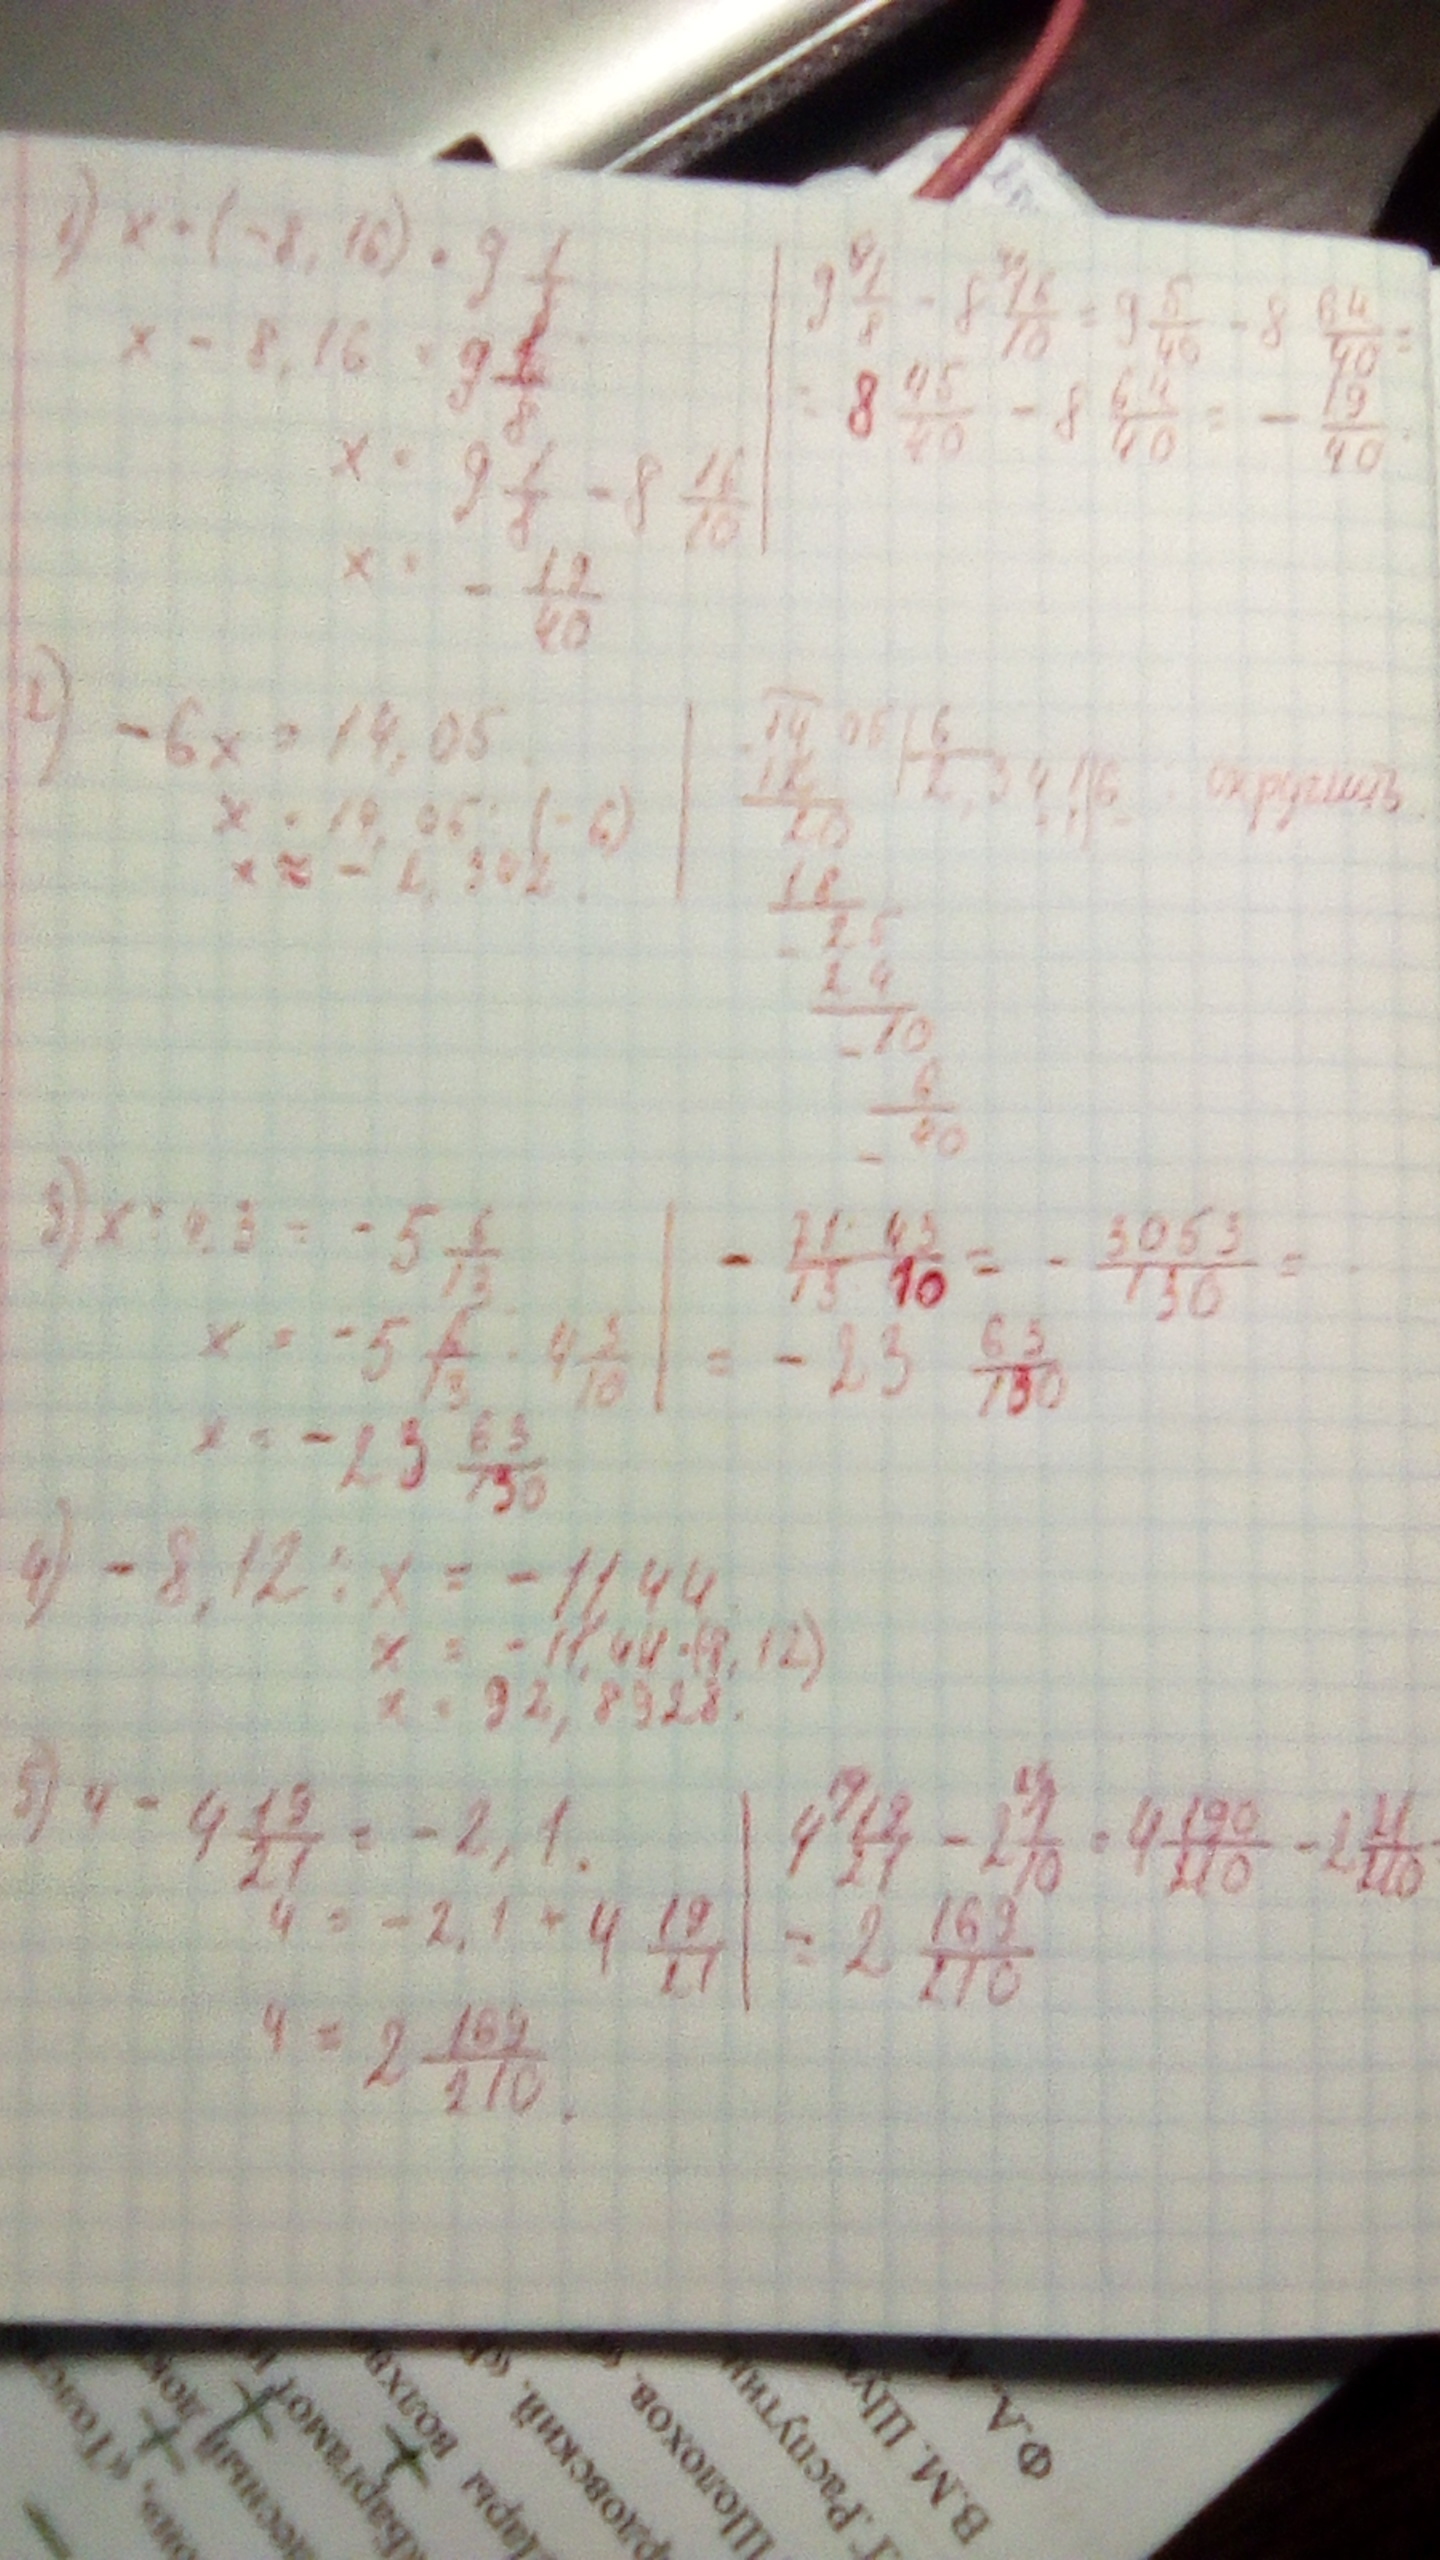 1) x + (-8,16) = 9 1/8
x - 8,16 = 9 1/8
x = 9 1/8 - 8 16/10
x = - 19/40
9 1/8 - 8 16/10 = 9 5/40 - 8 64/40 =
= 8 45/40 - 8 64/40 = - 19/40.
2) -6x = 14,05
x = 14,05 : (-6)
x ≈ - 2,342.
14 05 | 6
12 2,3416 округлить
20
18
- 25
24
- 10
6
- 40
3) x : 4,3 = -5 6/13
x = -5 6/13 · 4 3/10
x = -23 63/130
- 71 · 43/13 · 10 = - 3053/130 =
= - 23 63/130
4) -8,12 : x = -11,44
x = -11,44 · (8,12)
x = 92,8928.
5) y - 4 19/21 = -2,1.
y = -2,1 + 4 19/21
y = 2 169/210.
4 19/21 - 2 1/10 = 4 190/210 - 2 21/210
= 2 169/210
Ф.А.
В.М. Шу
Г. Распутин
Шолохов.
рдовский,
Дары волхв
«Баргамот
лесны
«Толст